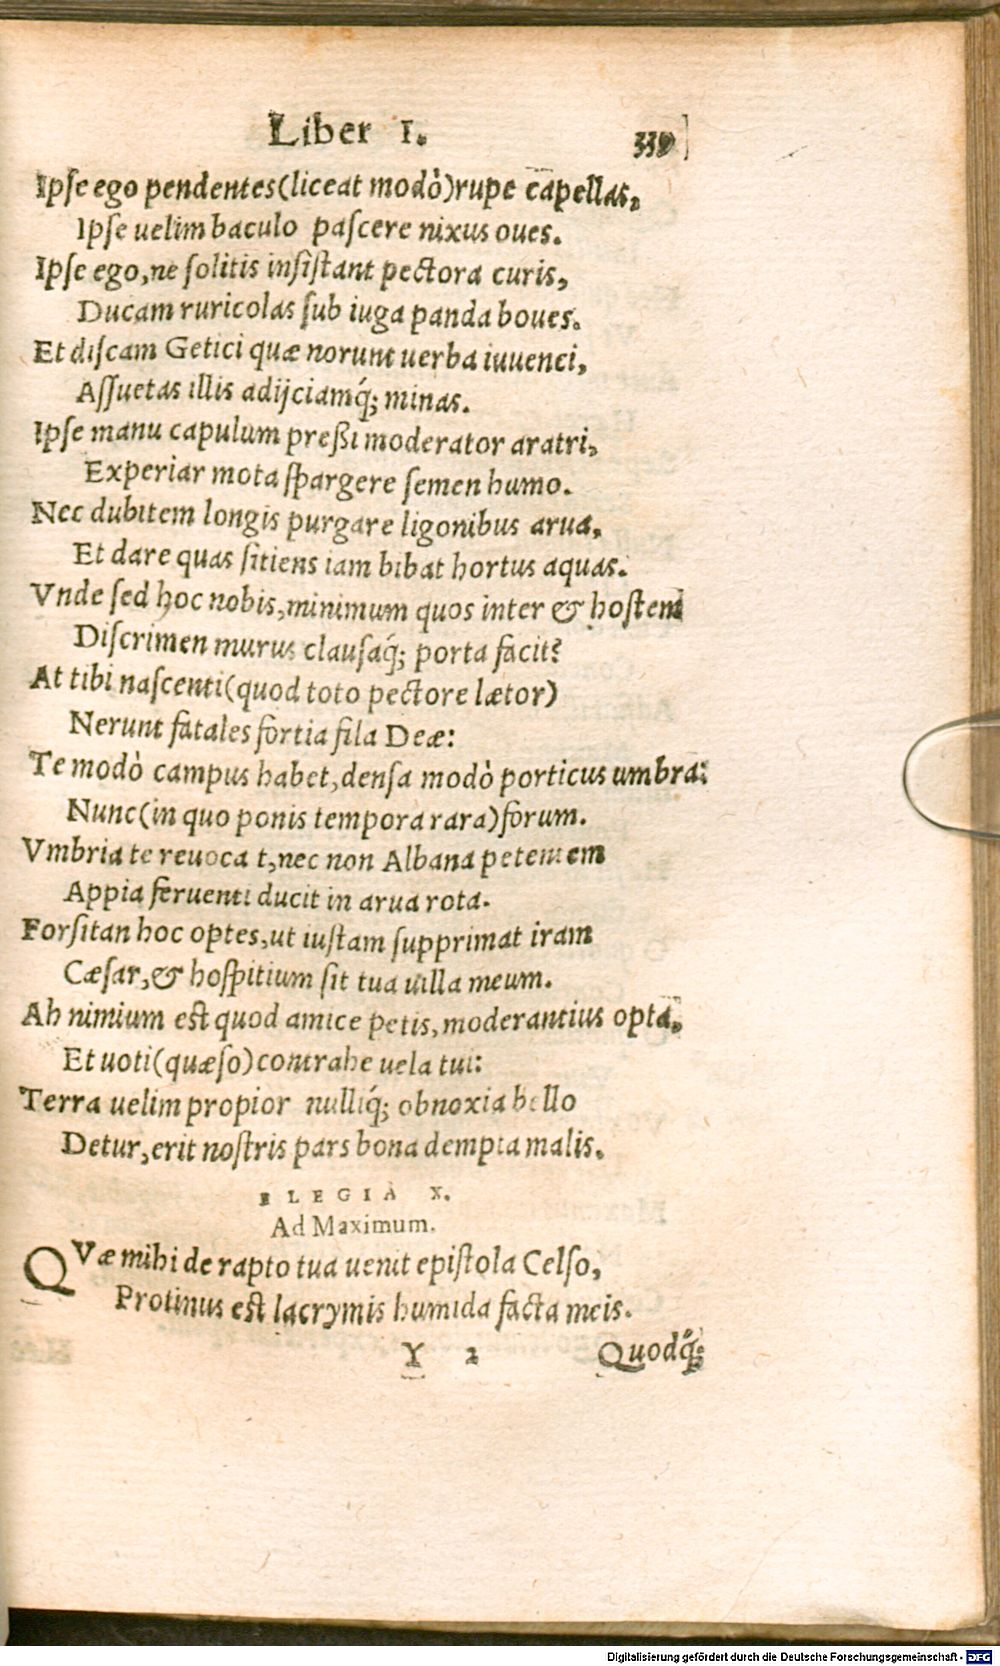 Liber I. 339
Ipse ego pendentes (liceat modò) rupe capellas,
Ipse uelim baculo pascere nixus oues.
Ipse ego, ne solitis insistant pectora curis,
Ducam ruricolas sub iuga panda boues.
Et discam Getici quæ norunt uerba iuuenci,
Assuetas illis adijciamq́; minas.
Ipse manu capulum preßi moderator aratri,
Experiar mota spargere semen humo.
Nec dubitem longis purgare ligonibus arua,
Et dare quas sitiens iam bibat hortus aquas.
Vnde sed hoc nobis, minimum quos inter & hostem
Discrimen murus clausaq́; porta facit?
At tibi nascenti (quod toto pectore lætor)
Nerunt fatales fortia fila Deæ:
Te modò campus habet, densa modò porticus umbra:
Nunc (in quo ponis tempora rara) forum.
Vmbria te reuocat, nec non Albana petentem
Appia feruenti ducit in arua rota.
Forsitan hoc optes, ut iustam supprimat iram
Cæsar, & hospitium sit tua uilla meum.
Ah nimium est quod amice petis, moderantius opta,
Et uoti (quæso) contrahe uela tui:
Terra uelim propior nulliq́; obnoxia bello
Detur, erit nostris pars bona dempta malis.
ELEGIA X.
Ad Maximum.
QVæ mihi de rapto tua uenit epistola Celso,
Protinus est lacrymis humida facta meis.
Y 2 Quodq́;
Digitalisierung gefördert durch die Deutsche Forschungsgemeinschaft - DFG